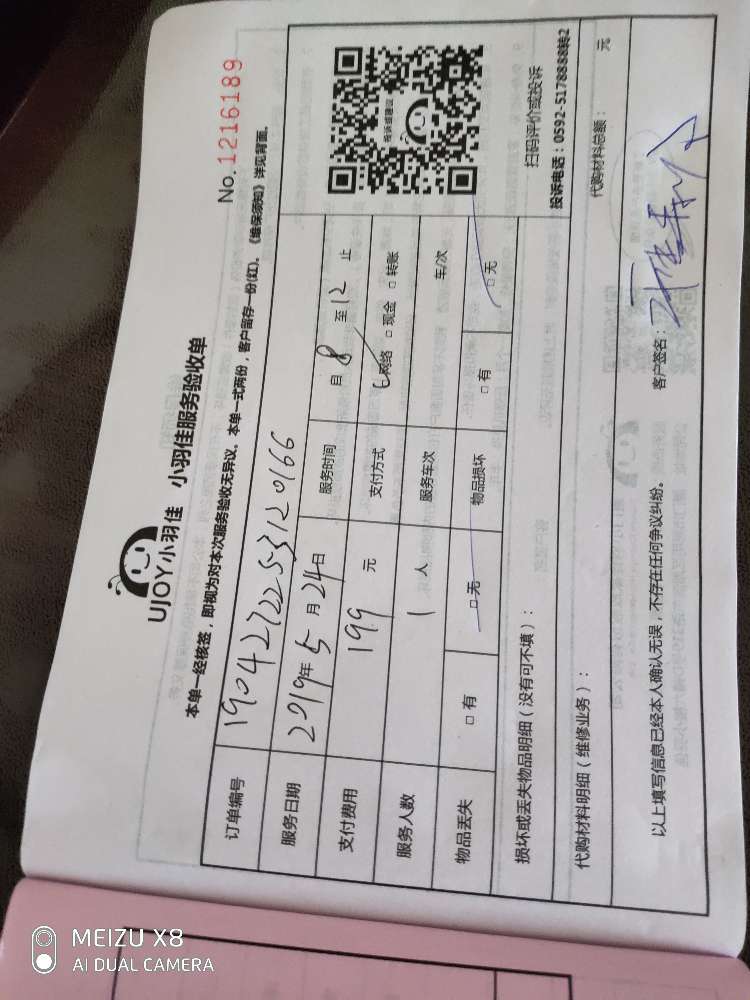 No.1216189
UJOY小羽佳 小羽佳服务验收单
本单一经核签，即视为对本次服务验收无异议。本单一式两份，客户留存一份(红)。《维保须知》详见背面。
订单编号 1904272253120166
服务日期 2019年5月24日 服务时间 自8至12止
支付费用 199元 支付方式 □网络 □现金 □转账
服务人数 1人 服务车次 车/次
物品丢失 □有 □无 物品损坏 □有 □无
投诉或建议
扫码评价或投诉
投诉电话：0592-5178888转2
损坏或丢失物品明细（没有可不填）：
代购材料明细（维修业务）： 代购材料总额： 元
以上填写信息已经本人确认无误，不存在任何争议纠纷。 客户签名：
MEIZU X8
AI DUAL CAMERA